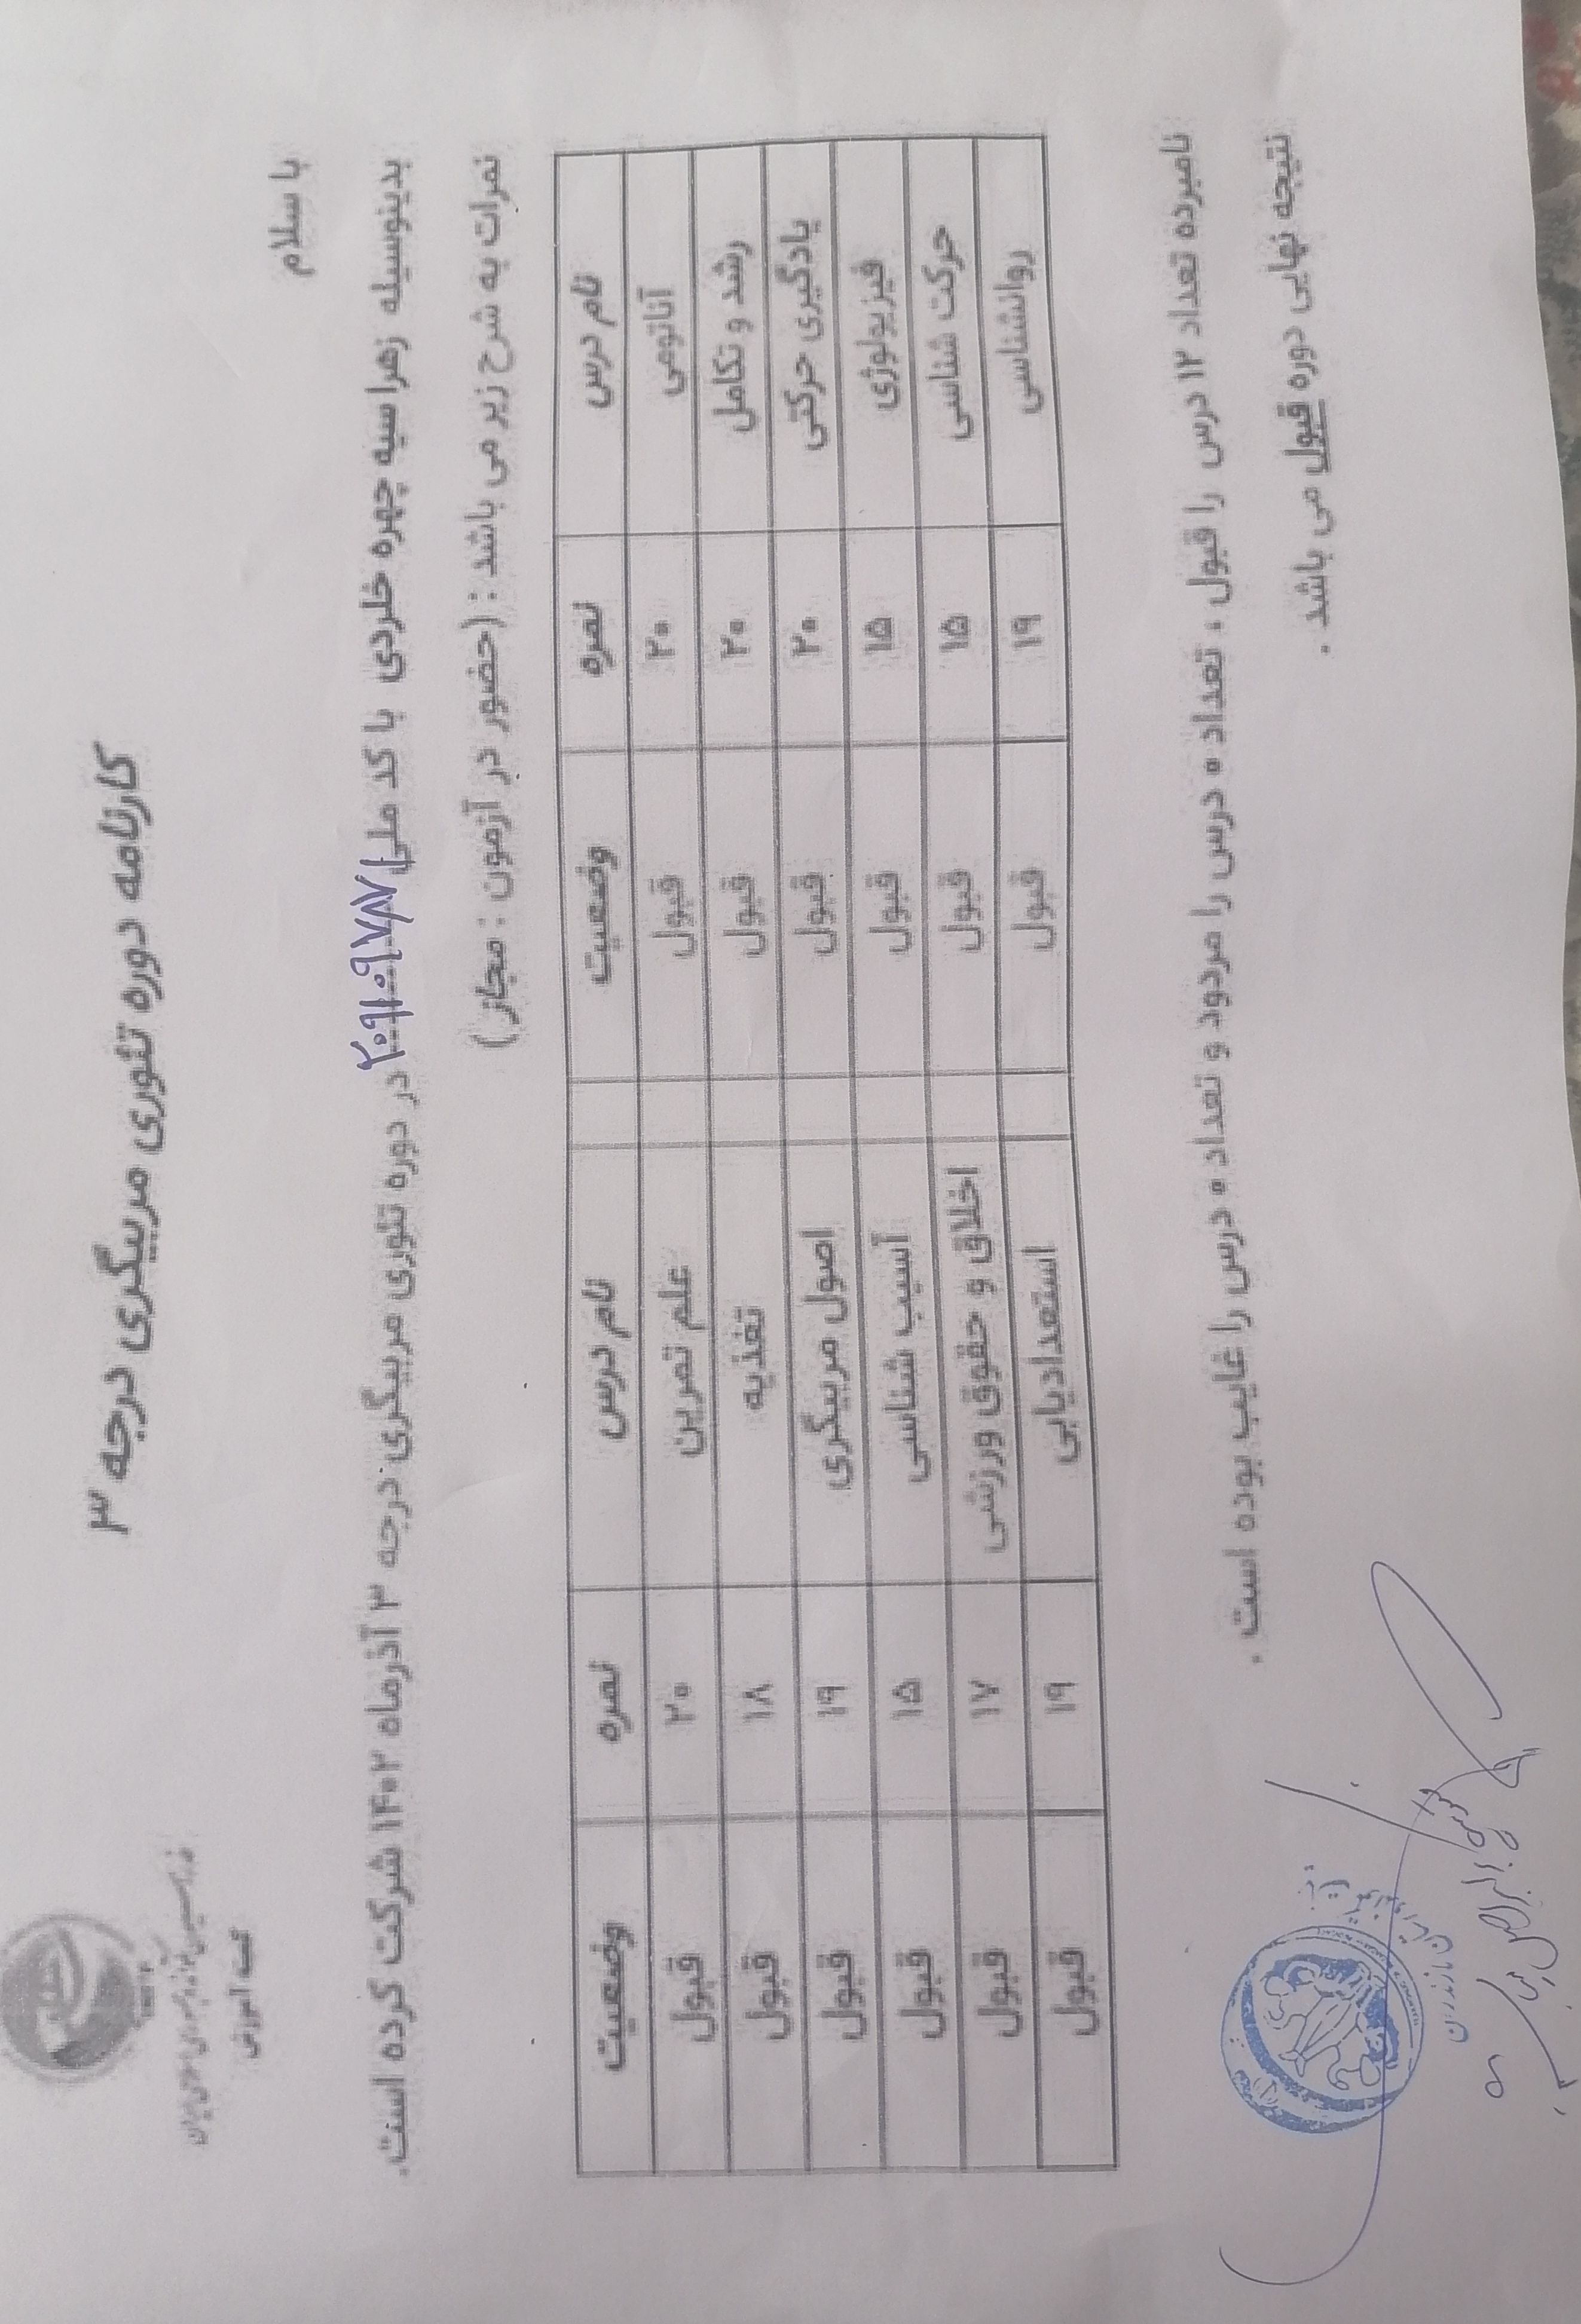 کمیته آموزش
کارنامه دوره تئوری مربیگری درجه ۳
با سلام
بدینوسیله زهرا سیه چهره خلردی با کد ملی در دوره تئوری مربیگری درجه ۳ آذرماه ۱۴۰۲ شرکت کرده است.
نمرات به شرح زیر می باشد : (حضور در آزمون : مجاز)
نام درس نمره وضعیت نام درس نمره وضعیت
آناتومی ۲۰ قبول علم تمرین ۲۰ قبول
رشد و تکامل ۲۰ قبول تغذیه ۱۸ قبول
یادگیری حرکتی ۲۰ قبول اصول مربیگری ۱۹ قبول
فیزیولوژی ۱۵ قبول آسیب شناسی ۱۵ قبول
حرکت شناسی ۱۵ قبول اخلاق و حقوق ورزشی ۱۷ قبول
روانشناسی ۱۹ قبول استعدادیابی ۱۹ قبول
نامبرده تعداد ۱۲ درس را قبول ، تعداد ۰ درس را مردود و تعداد ۰ درس را غایب بوده است .
نتیجه نهایی دوره قبول می باشد .
مازندران